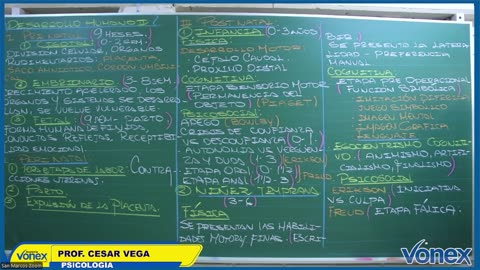 DESARROLLO HUMANO I (
I. PRE NATAL (9 MESES)
(0-2SEM)
DIVISION CELULAR, ORGANOS
RUDIMENTARIOS, PLACENTA
SACO AMNIOTICO
② EMBRIONARIO (3-8SEM)
CRECIMIENTO ACELERADO, LOS
ÓRGANOS Y SISTEMAS SE DESARRO-
LLAN. SE VUELVE VULNERABLE
③ FETAL (9SEM- PARTO)
FORMA HUMANA DEFINIDA,
CONDUCTAS REFLEJAS, RECEPTIBI
LIDAD EMOCIONAL.
II. PERI NATAL
① PERIODO DE LABOR: CONTRA-
CIONES UTERINAS.
② PARTO.
③ EXPULSIÓN DE LA PLACENTA
III POST NATAL
① INFANCIA (0-3AÑOS)
FÍSICA
DESARROLLO MOTOR:
• CEFALO CAUDAL
• PROXIMO DIGITAL
COGNITIVA
ETAPA SENSORIO MOTOR
(PERMANENCIA DEL
OBJETO) (PIAGET)
PSICOSOCIAL
APEGO (BOWLBY)
CRISIS DE CONFIANZA
VS DESCONFIANZA (0-1)
AUTONOMIA VS VERGÜEN
ZA Y DUDA (1-3) ERIKSON
ETAPA ORAL (0-1) FREUD
ETAPA ANAL (1-3)
② NIÑEZ TEMPRANA
(3-6)
FÍSICA
SE PRESENTAN LAS HABILI
DADES MOTORAS FINAS. (ESCRI-
BIR)
SE PRESENTA LA LATERA
LIDAD - PREFERENCIA
MANUAL
COGNITIVA
ETAPA PRE OPERACIONAL
(FUNCIÓN SIMBÓLICA)
- IMITACIÓN DIFERIDA
- JUEGO SIMBÓLICO
- IMAGEN MENTAL
- IMAGEN GRAFICA
- LENGUAJE
EGOCENTRISMO COGNITI
VO. (ANIMISMO, ARTIFI-
CIALISMO, FINALISMO)
PSICOSOCIAL
ERIKSON (INICIATIVA
VS CULPA)
FREUD (ETAPA FÁLICA.)
VONEX
San Marcos Zoom
PROF. CESAR VEGA
PSICOLOGIA
VONEX